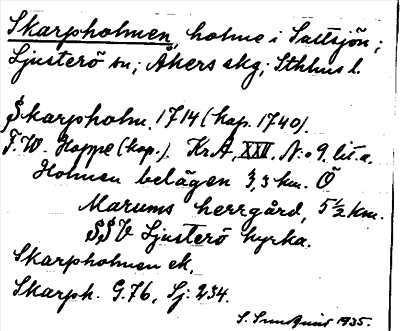 Skarpholmen, holme i Saltsjön;
Ljusterö sn; Åkers skg; Sthlms l.
Skarpholm. 1714 (kop. 1740).
F.W. Hoppe (kop.). Kr.A, XXII, N:o 9, lit. a.
Holmen belägen 3,3 km. Ö
Marums herrgård, 5 1/2 km.
SSV Ljusterö kyrka.
Skarpholmen ek.
Skarph. G.76, Sj. 234.
S. 1935.